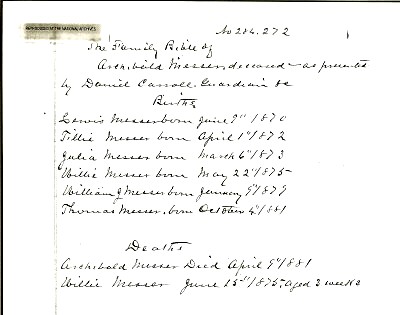 REPRODUCED AT THE NATIONAL ARCHIVES
No 284.272
The Family Bible of
Archibald Messer, deceased - as presented
by Daniel Carroll Guardian &c
Births
Lewis Messer born June 9" 1870
Tillie Messer born April 1st 1872
Julia Messer born March 6" 1873
Willie Messer born May 22" 1875
William J Messer born January 9" 1879
Thomas Messer, born October 4" 1881
Deaths
Archibald Messer Died April 9" 1881
Willie Messer June 15" 1875 aged 3 weeks